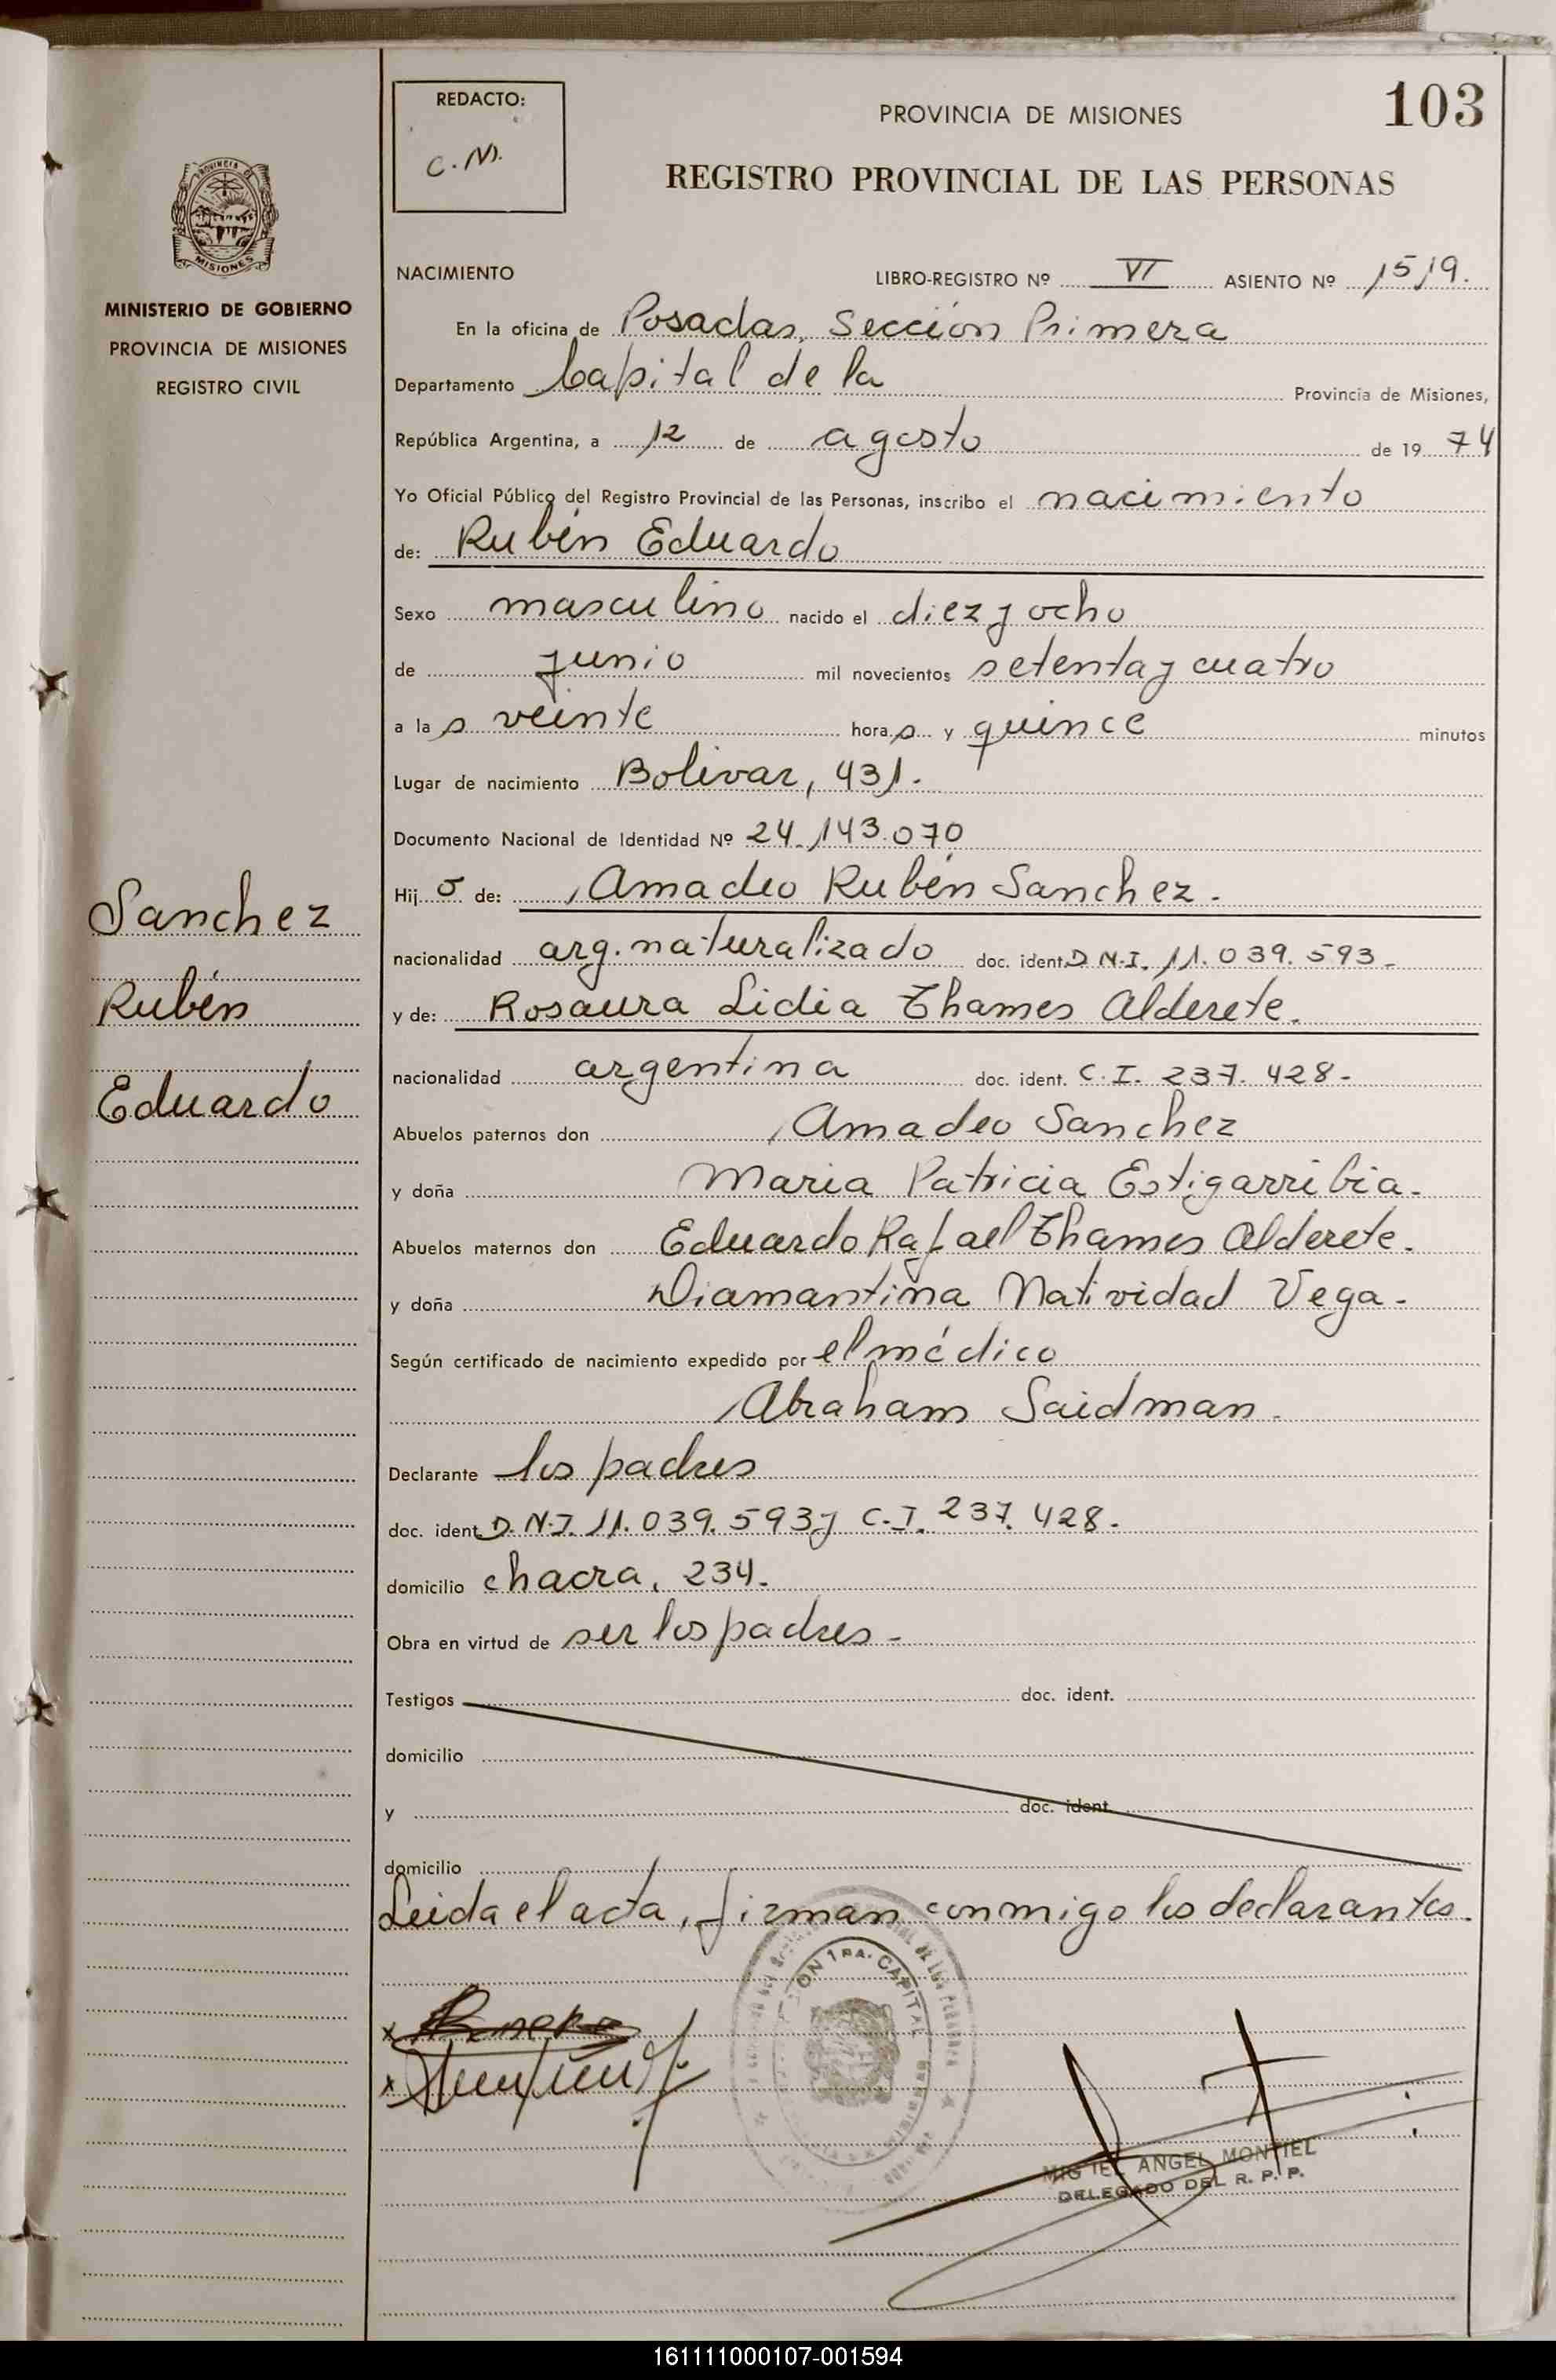 REDACTO:
C.M.
PROVINCIA DE MISIONES
103
REGISTRO PROVINCIAL DE LAS PERSONAS
PROVINCIA
MISIONES
MINISTERIO DE GOBIERNO
PROVINCIA DE MISIONES
REGISTRO CIVIL
NACIMIENTO LIBRO-REGISTRO Nº VI ASIENTO Nº 1519.
En la oficina de Posadas, Sección Primera
Departamento Capital de la Provincia de Misiones,
República Argentina, a 12 de agosto de 1974
Yo Oficial Público del Registro Provincial de las Personas, inscribo el nacimiento
de: Rubén Eduardo
Sexo masculino nacido el diez y ocho
de junio mil novecientos setenta y cuatro
a las veinte horas y quince minutos
Lugar de nacimiento Bolivar, 431.
Documento Nacional de Identidad Nº 24.143.070
Hijo de: Amadeo Rubén Sanchez.
nacionalidad arg. naturalizado doc. ident. D.N.I. 11.039.593-
y de: Rosaura Lidia Thames Alderete.
nacionalidad argentina doc. ident. C.I. 237.428-
Abuelos paternos don Amadeo Sanchez
y doña Maria Patricia Estigarribia.
Abuelos maternos don Eduardo Rafael Thames Alderete.
y doña Diamantina Natividad Vega-
Según certificado de nacimiento expedido por el médico
Abraham Saidman.
Declarante los padres
doc. ident. D.N.I. 11.039.593 y C.I. 237.428-
domicilio chacra, 234.
Obra en virtud de ser los padres-
Testigos doc. ident.
domicilio
y doc. ident.
domicilio
Leida el acta, firman conmigo los declarantes.
Sanchez
Rubén
Eduardo
1RA. CAPITAL
MIGUEL ANGEL MONTIEL
DELEGADO DEL R. P. P.
161111000107-001594